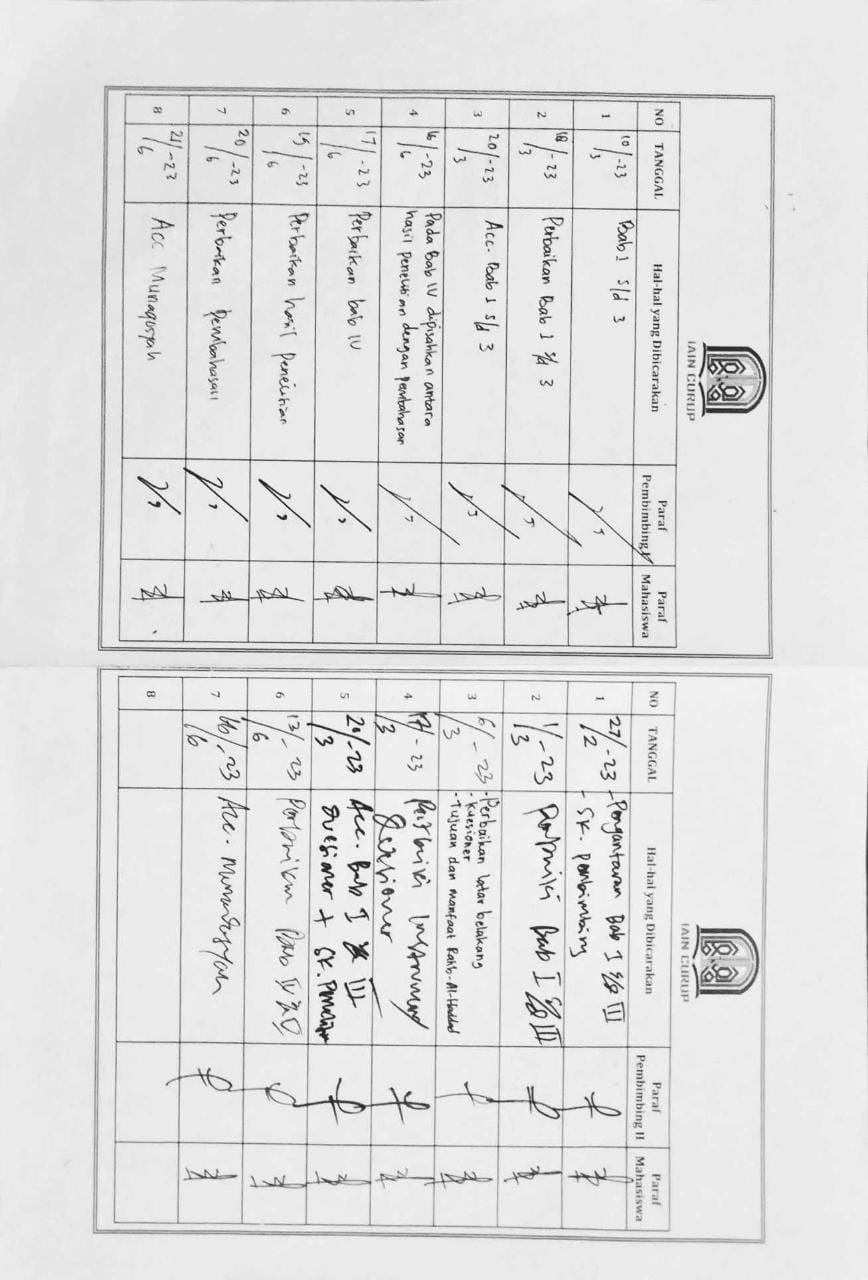 IAIN CURUP
NO TANGGAL Hal-hal yang Dibicarakan Paraf Pembimbing I Paraf Mahasiswa
1 10/3 -23 Bab 1 s/d 3
2 18/3 -23 Perbaikan Bab 1 s/d 3
3 20/3 -23 Acc. Bab 1 s/d 3
4 16/6 -23 Pada Bab IV dipisahkan antara
hasil penelitian dengan pembahasan
5 17/6 -23 Perbaikan bab IV
6 19/6 -23 Perbaikan hasil penelitian
7 20/6 -23 Perbaikan Pembahasan
8 21/6 -23 Acc Munaqosyah
IAIN CURUP
NO TANGGAL Hal-hal yang Dibicarakan Paraf Pembimbing II Paraf Mahasiswa
1 27/2 -23 - Pengantaran Bab I s/d III
- SK. Pembimbing
2 1/3 -23 Perbaiki Bab I s/d III
3 6/3 -23 - Perbaikan latar belakang
- Kuesioner
- Tujuan dan manfaat Ratib-Al-Haddad
4 17/3 -23 Perbaiki Instrumen
Quesioner
5 20/3 -23 Acc. Bab I s/d III
Quesioner + SK. Penelitian
6 13/6 -23 Perbaikan Bab IV
7 16/6 -23 Acc. Munaqosyah
8